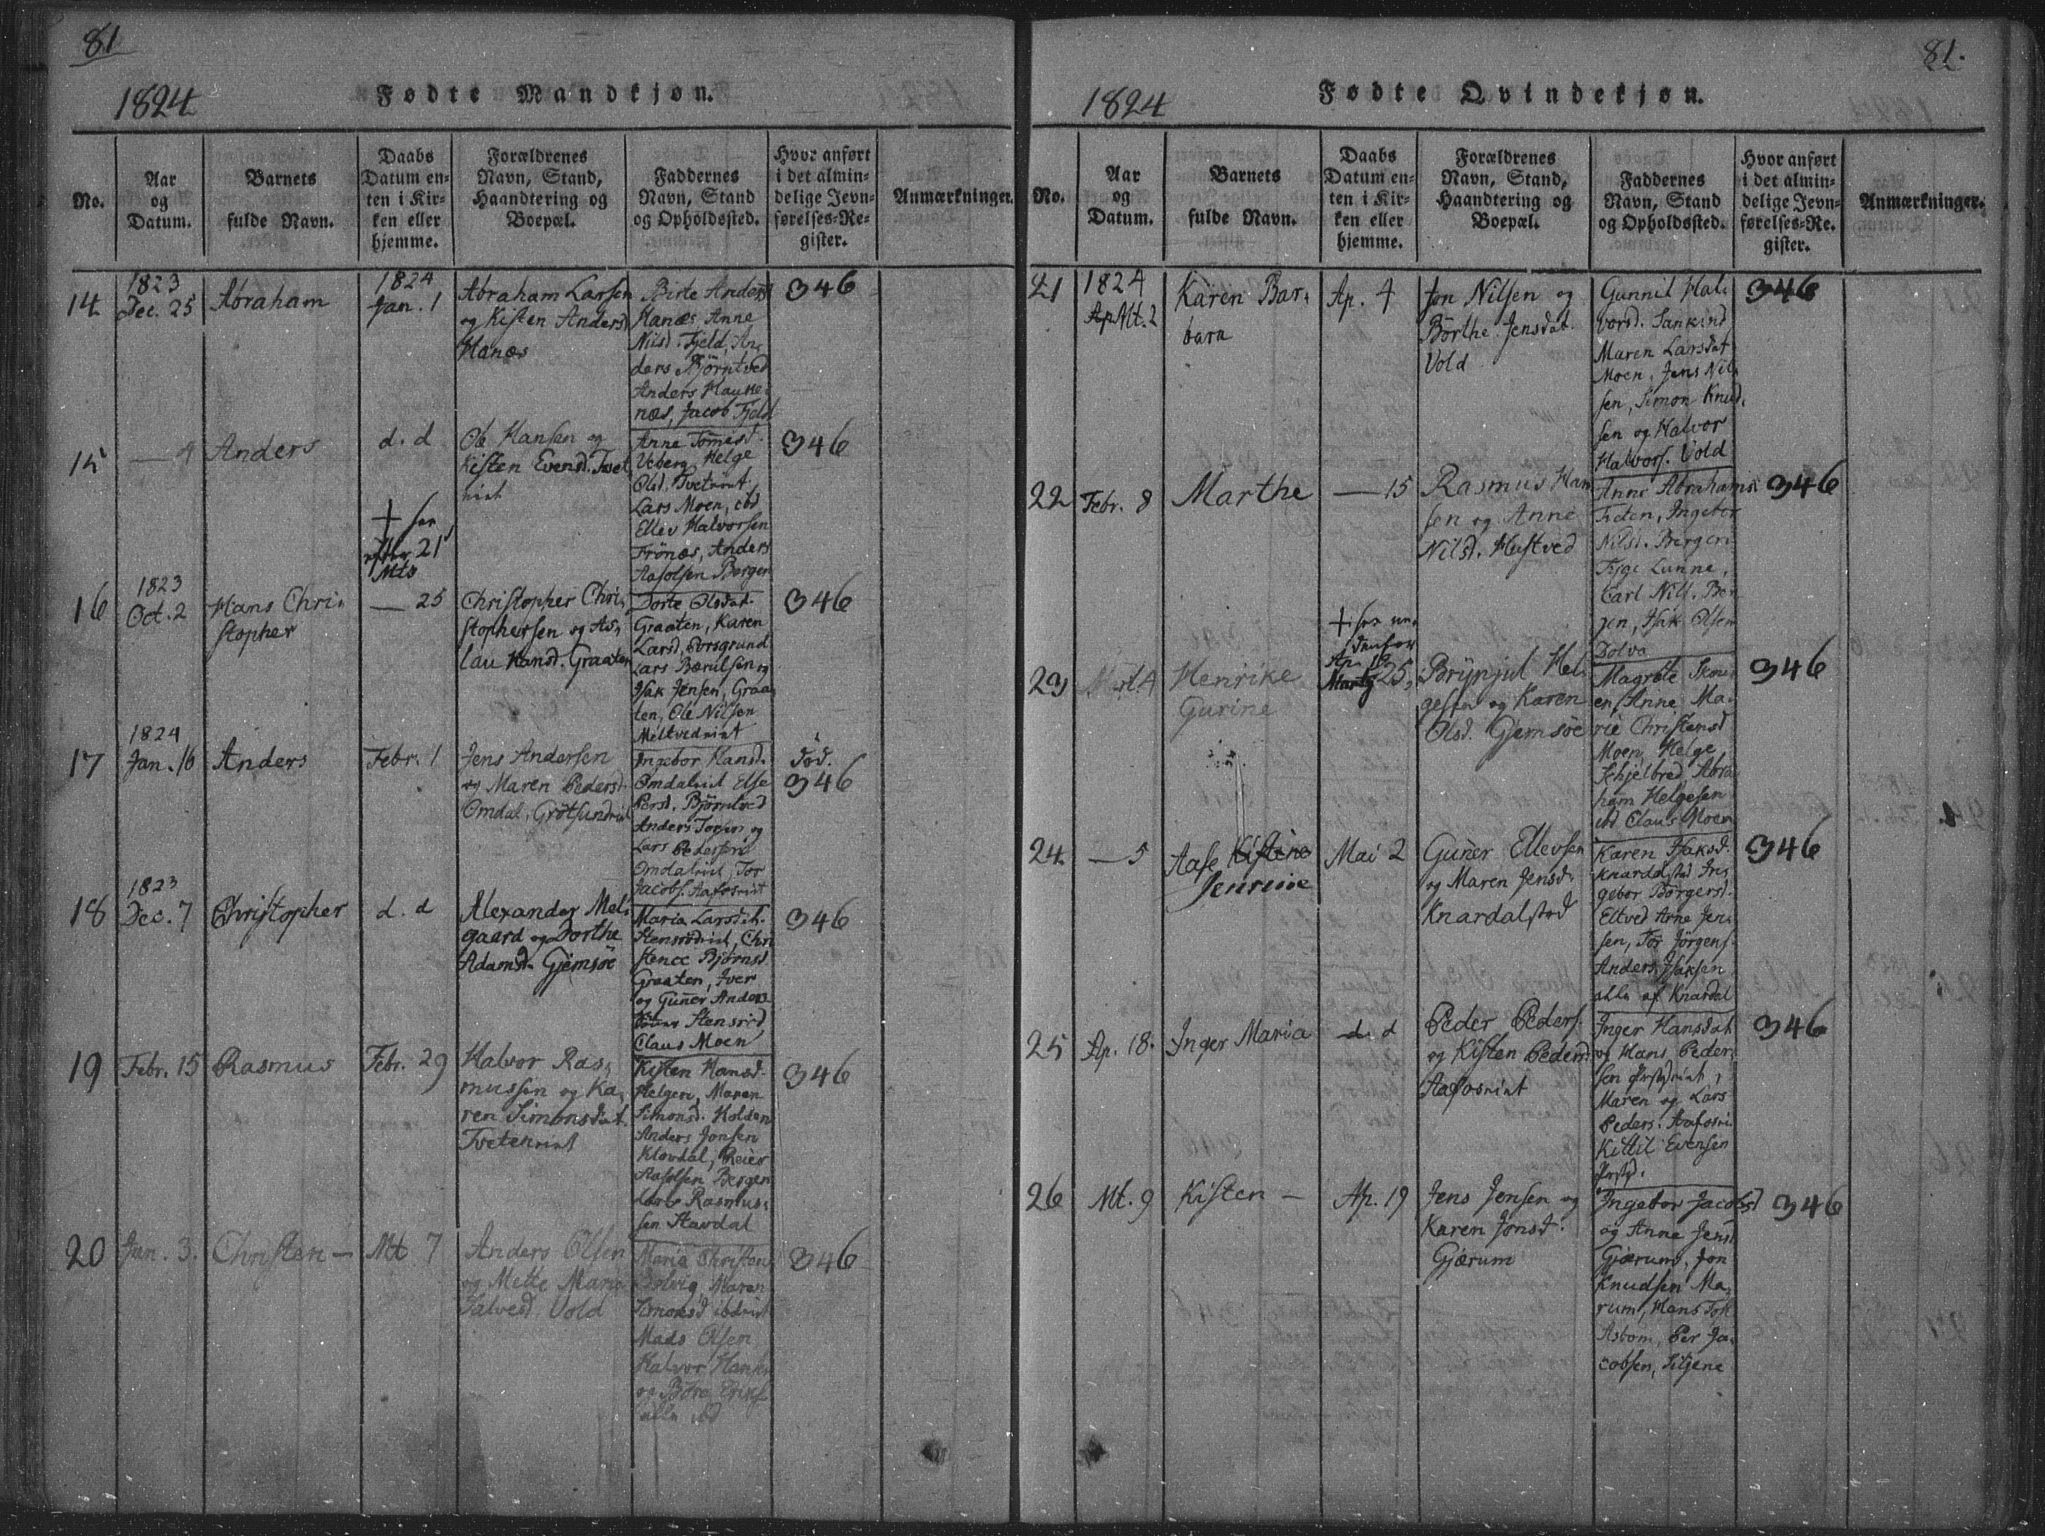 81
1824
Fødte Mandkjøn.
No.
Aar
og
Datum.
Barnets
fulde Navn.
Daabs
Datum en-
ten i Kir-
ken eller
hjemme.
Forældrenes
Navn, Stand,
Haandtering og
Boepæl.
Faddernes
Navn, Stand
og Opholdssted.
Hvor anført
i det almin-
delige Jevn-
førelses-Re-
gister.
Anmærkninger.
14
1823
Dec. 25
Abraham
1824
Jan. 1
Abraham Larsen
og Kisten Andersd
Hanæs
Birte Andersd
Hanæs Anne
Nilsd. Fjeld, An-
ders Björntved
Anders Haukenæs, Jacob Fjeld
346
15
Anders
d. d
Ole Hansen og
Kisten Evensd. Tvet
Anne Tomisd.
Helge
Olsd.
Lars Moen,
Ellev Halvorsen
Frönæs, Anders
Aasolsen Bergen
346
16
1823
Oct. 2
Hans Chri-
stopher
— 25
Christopher Chri-
stophersen og As-
lau Hansd. Graaten
Dorte Olsdat.
Graaten, Karen
Larsd, Porsgrund
Isak Jensen, Graa-
ten, Ole Nilsen
346
17
1824
Jan. 16
Anders
Febr. 1
Jens Andersen
og Maren Pedersd.
Omdal,
Ingebor Hansd.
Omdalriet Else
Persd. Björntved
Anders Torsen og
Lars Pedersen
Omdalriet, Tor
Jacobs.
död.
346
18
1823
Dec. 7
Christopher
d. d
Alexander Mel-
gaard og Dorthe
Adamsd. Gjemsöe
Maria Larsdat.
Chri
stence Björnsd
Graaten, Iver
og Guner Anders
Claus Moen
346
19
Febr. 15
Rasmus
Febr. 29
Halvor Ras-
mussen og Ka-
ren Simonsdat.
Tveteneiet
Kisten Hansd.
Helgen, Maren
Simonsd. Holden
Anders Jonsen
Klovdal, Reier
Aasolsen Bergen
Lars Rasmus-
sen Stavdal
346
20
Jan. 3.
Christen —
Mt 7
Anders Olsen
og Mette Maria
Talvesd. Vold
Maria Christens
Maren
Simonsd
Mads Olsen
Halvor Hans
346
81.
1824
Fødte Qvindekjøn.
No.
Aar
og
Datum.
Barnets
fulde Navn.
Daabs
Datum en-
ten i Kir-
ken eller
hjemme.
Forældrenes
Navn, Stand,
Haandtering og
Boepæl.
Faddernes
Navn, Stand
og Opholdssted.
Hvor anført
i det almin-
delige Jevn-
førelses-Re-
gister.
Anmærkninger.
21
1824
Mt. 2
Karen Bar-
bara
Ap. 4
Jon Nilsen og
Börthe Jensdat.
Vold
Gunnil Hal-
vorsd.
Maren Larsdat
Moen, Jens Nil-
sen, Simon Knud-
sen og Halvor
Halvors. Vold
346
22
Febr. 8
Marthe
— 15
Rasmus Han
sen og Anne
Nilsd. Hustved
Anne Abrahamsd
Feten, Ingebor
Nilsd. Bergen
Tyge Lunne,
Carl Nils. Ber-
gen, Isak Olsen
Dolva
346
23
Mt. 4
Henrike
Gurine
25
Brynjul Hel-
gesen og Karen
Olsd. Gjemsöe
Magrete
Anne Ma-
rie Christensd
Moen, Helge
Schjelbred, Abra-
ham Helgesen
Claus Moen
346
24.
— 5
Aase Kistene
Jenrine
Mai 2
Guner Ellevsen
og Maren Jensd.
Knardalstad
Karen Isaksd.
Knardalstad In-
gebor Börgersd.
Eltved Arne Jen-
sen, Tor Jörgens.
Anders Isaksen
alle af Knardal
346
25
Ap. 18.
Inger Maria
d. d
Peder Peders.
og Kisten Pedersd.
Inger Hansdat
og Hans Peder-
sen
Maren og Lars
Peders.
Kittil Evensen
346
26
Mt. 9
Kisten —
Ap. 19
Jens Jensen og
Karen Jonsd.
Gjærum
Ingebor Jacobsd
og Anne Jensd
Gjærum, Jon
Knudsen Ma-
rum, Hans
Asbom, Per Ja-
cobsen, Siljene
346